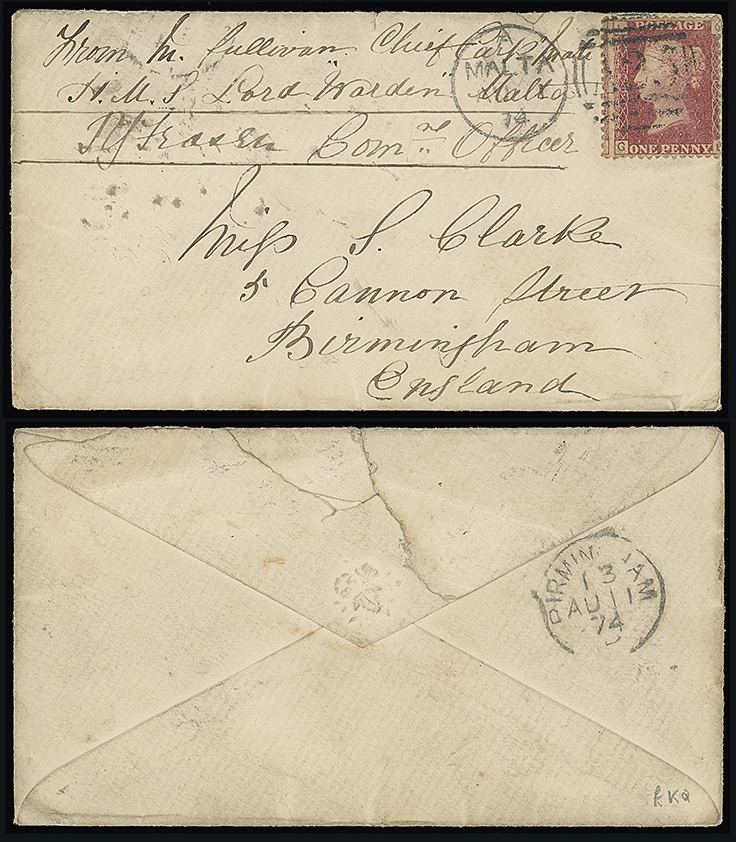 From M. Sullivan Chief
H.M.S Lord "Warden" Malta
Com.ng Officer
A
MALTA
74
POSTAGE
ONE PENNY
Miss S. Clarke
5 Cannon Street
Birmingham
England
BIRMINGHAM
13
AU 11
74